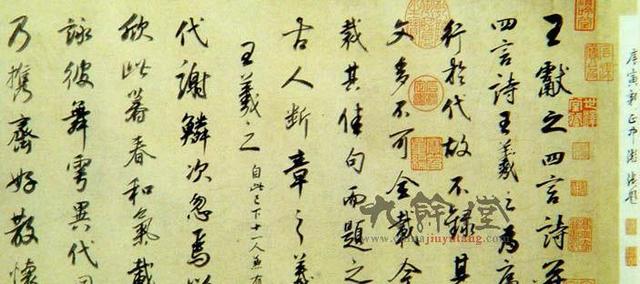 庚寅新正中澣御題
王獻之四言詩并
四言詩王羲之為序
行於代故不錄其
文多不可全載今
裁其佳句而題之
古人斷章之義
王羲之 自此已下十一人無有
代謝鱗次忽焉以
欣此暮春和氣載
詠彼舞雩異代同
乃攜齊好散懷
九餘堂